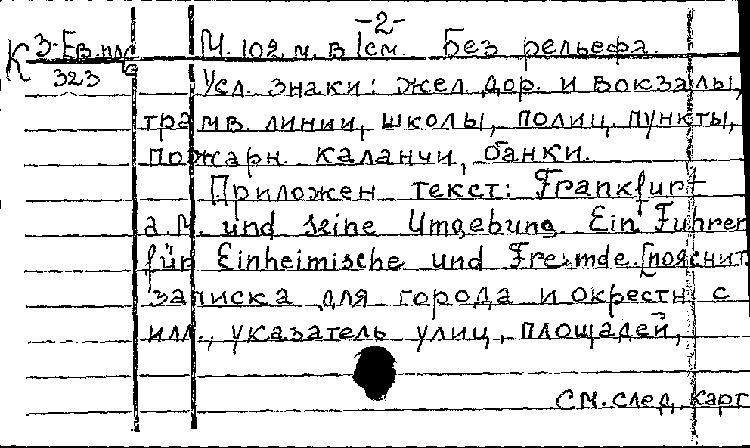 -2-
К 3-Ев.пл М. 102 м. в 1 см. Без рельефа.
323 6 Усл. знаки: жел дор. и вокзалы,
трамв. линии, школы, полиц. пункты,
пожарн. каланчи, банки.
Приложен текст: Frankfurt
a. M. und seine Umgebung. Ein Fuhrer
für Einheimische und Fremde. [пояснит.
записка для города и окрестн. с
илл., указатель улиц, площадей,
см. след. карт